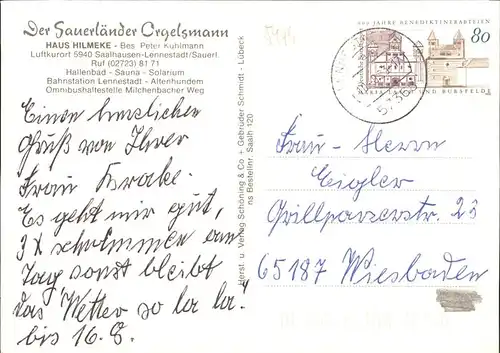 Der Sauerländer Orgelsmann
HAUS HILMEKE - Bes. Peter Kuhlmann
Luftkurort 5940 Saalhausen-Lennestadt/Sauerl.
Ruf (02723) 81 71
Hallenbad - Sauna - Solarium
Bahnstation Lennestadt - Altenhundem
Omnibushaltestelle Milchenbacher Weg
Einen herzlichen
Gruß von Ihrer
Frau
Es geht mir gut,
3x schwimmen am
Tag sonst bleibt
das Wetter so la la.
bis 16.8.
Herst. u. Verlag Schöning & Co + Gebrüder Schmidt - Lübeck
Bestellnr. Saalh 120
900 JAHRE BENEDIKTINERABTEIEN
80
UND BURSFELDE
Frau - Herrn
Eigler
Grillparzerstr. 23
65187 Wiesbaden